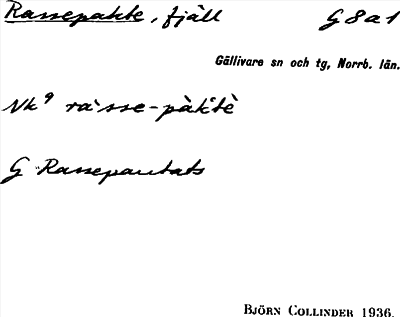 Rassepakte, fjäll G8a1
Gällivare sn och tg, Norrb. län.
Nk⁹ ràsse-pàktè
G Rassepautats
BJÖRN COLLINDER 1936.